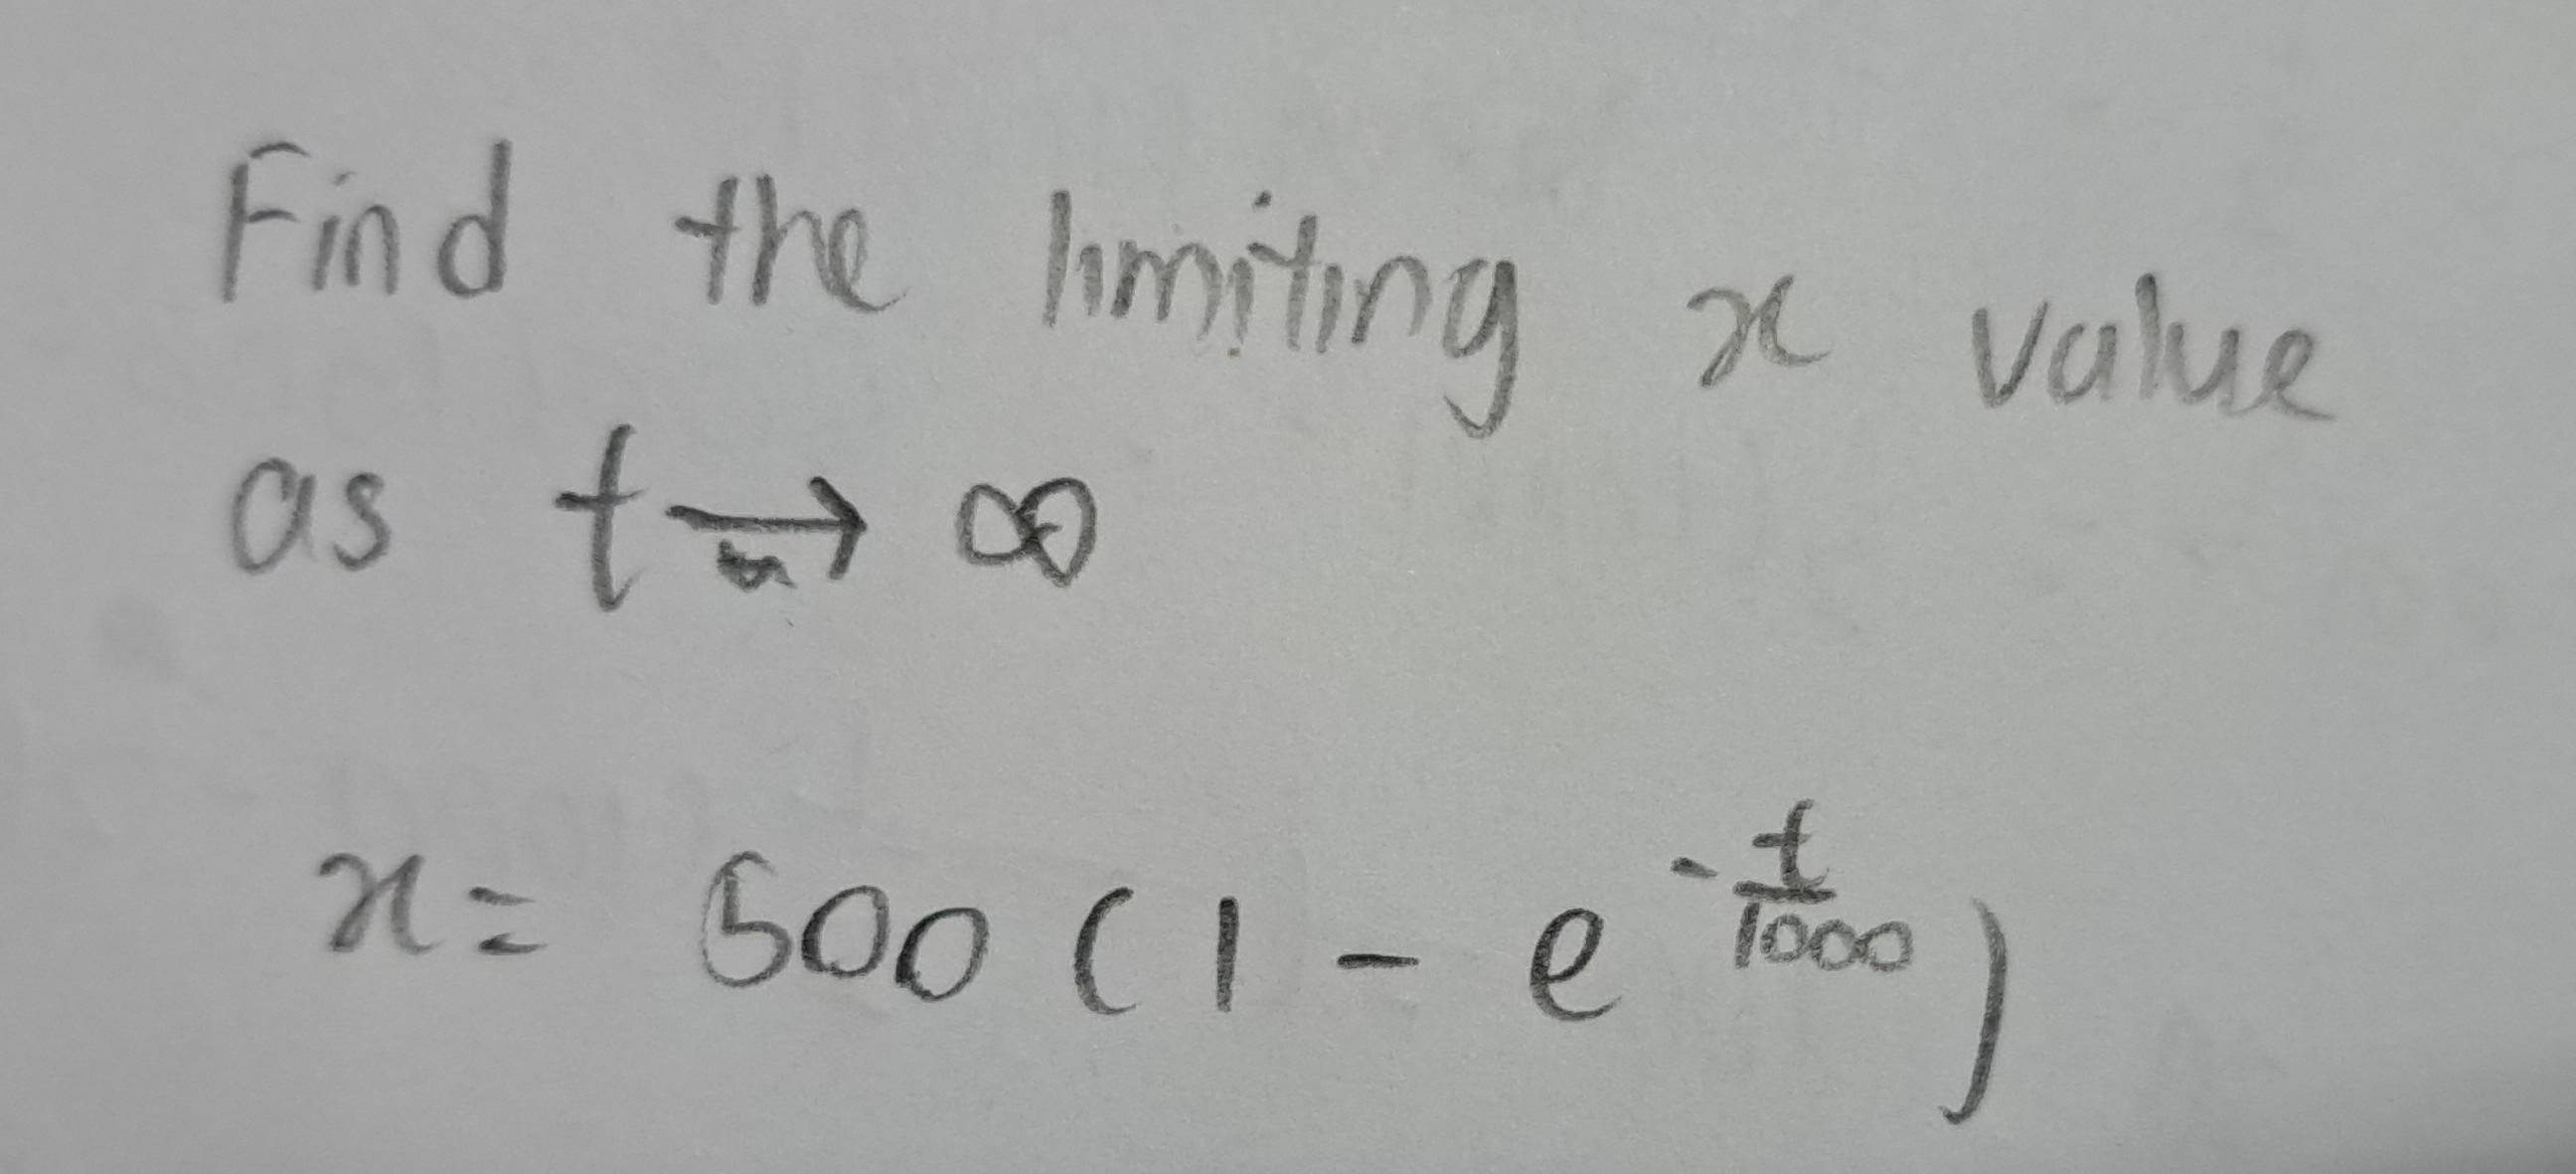 Find the limiting x value
as t → ∞
x = 500 (1 - e^{-t/1000})